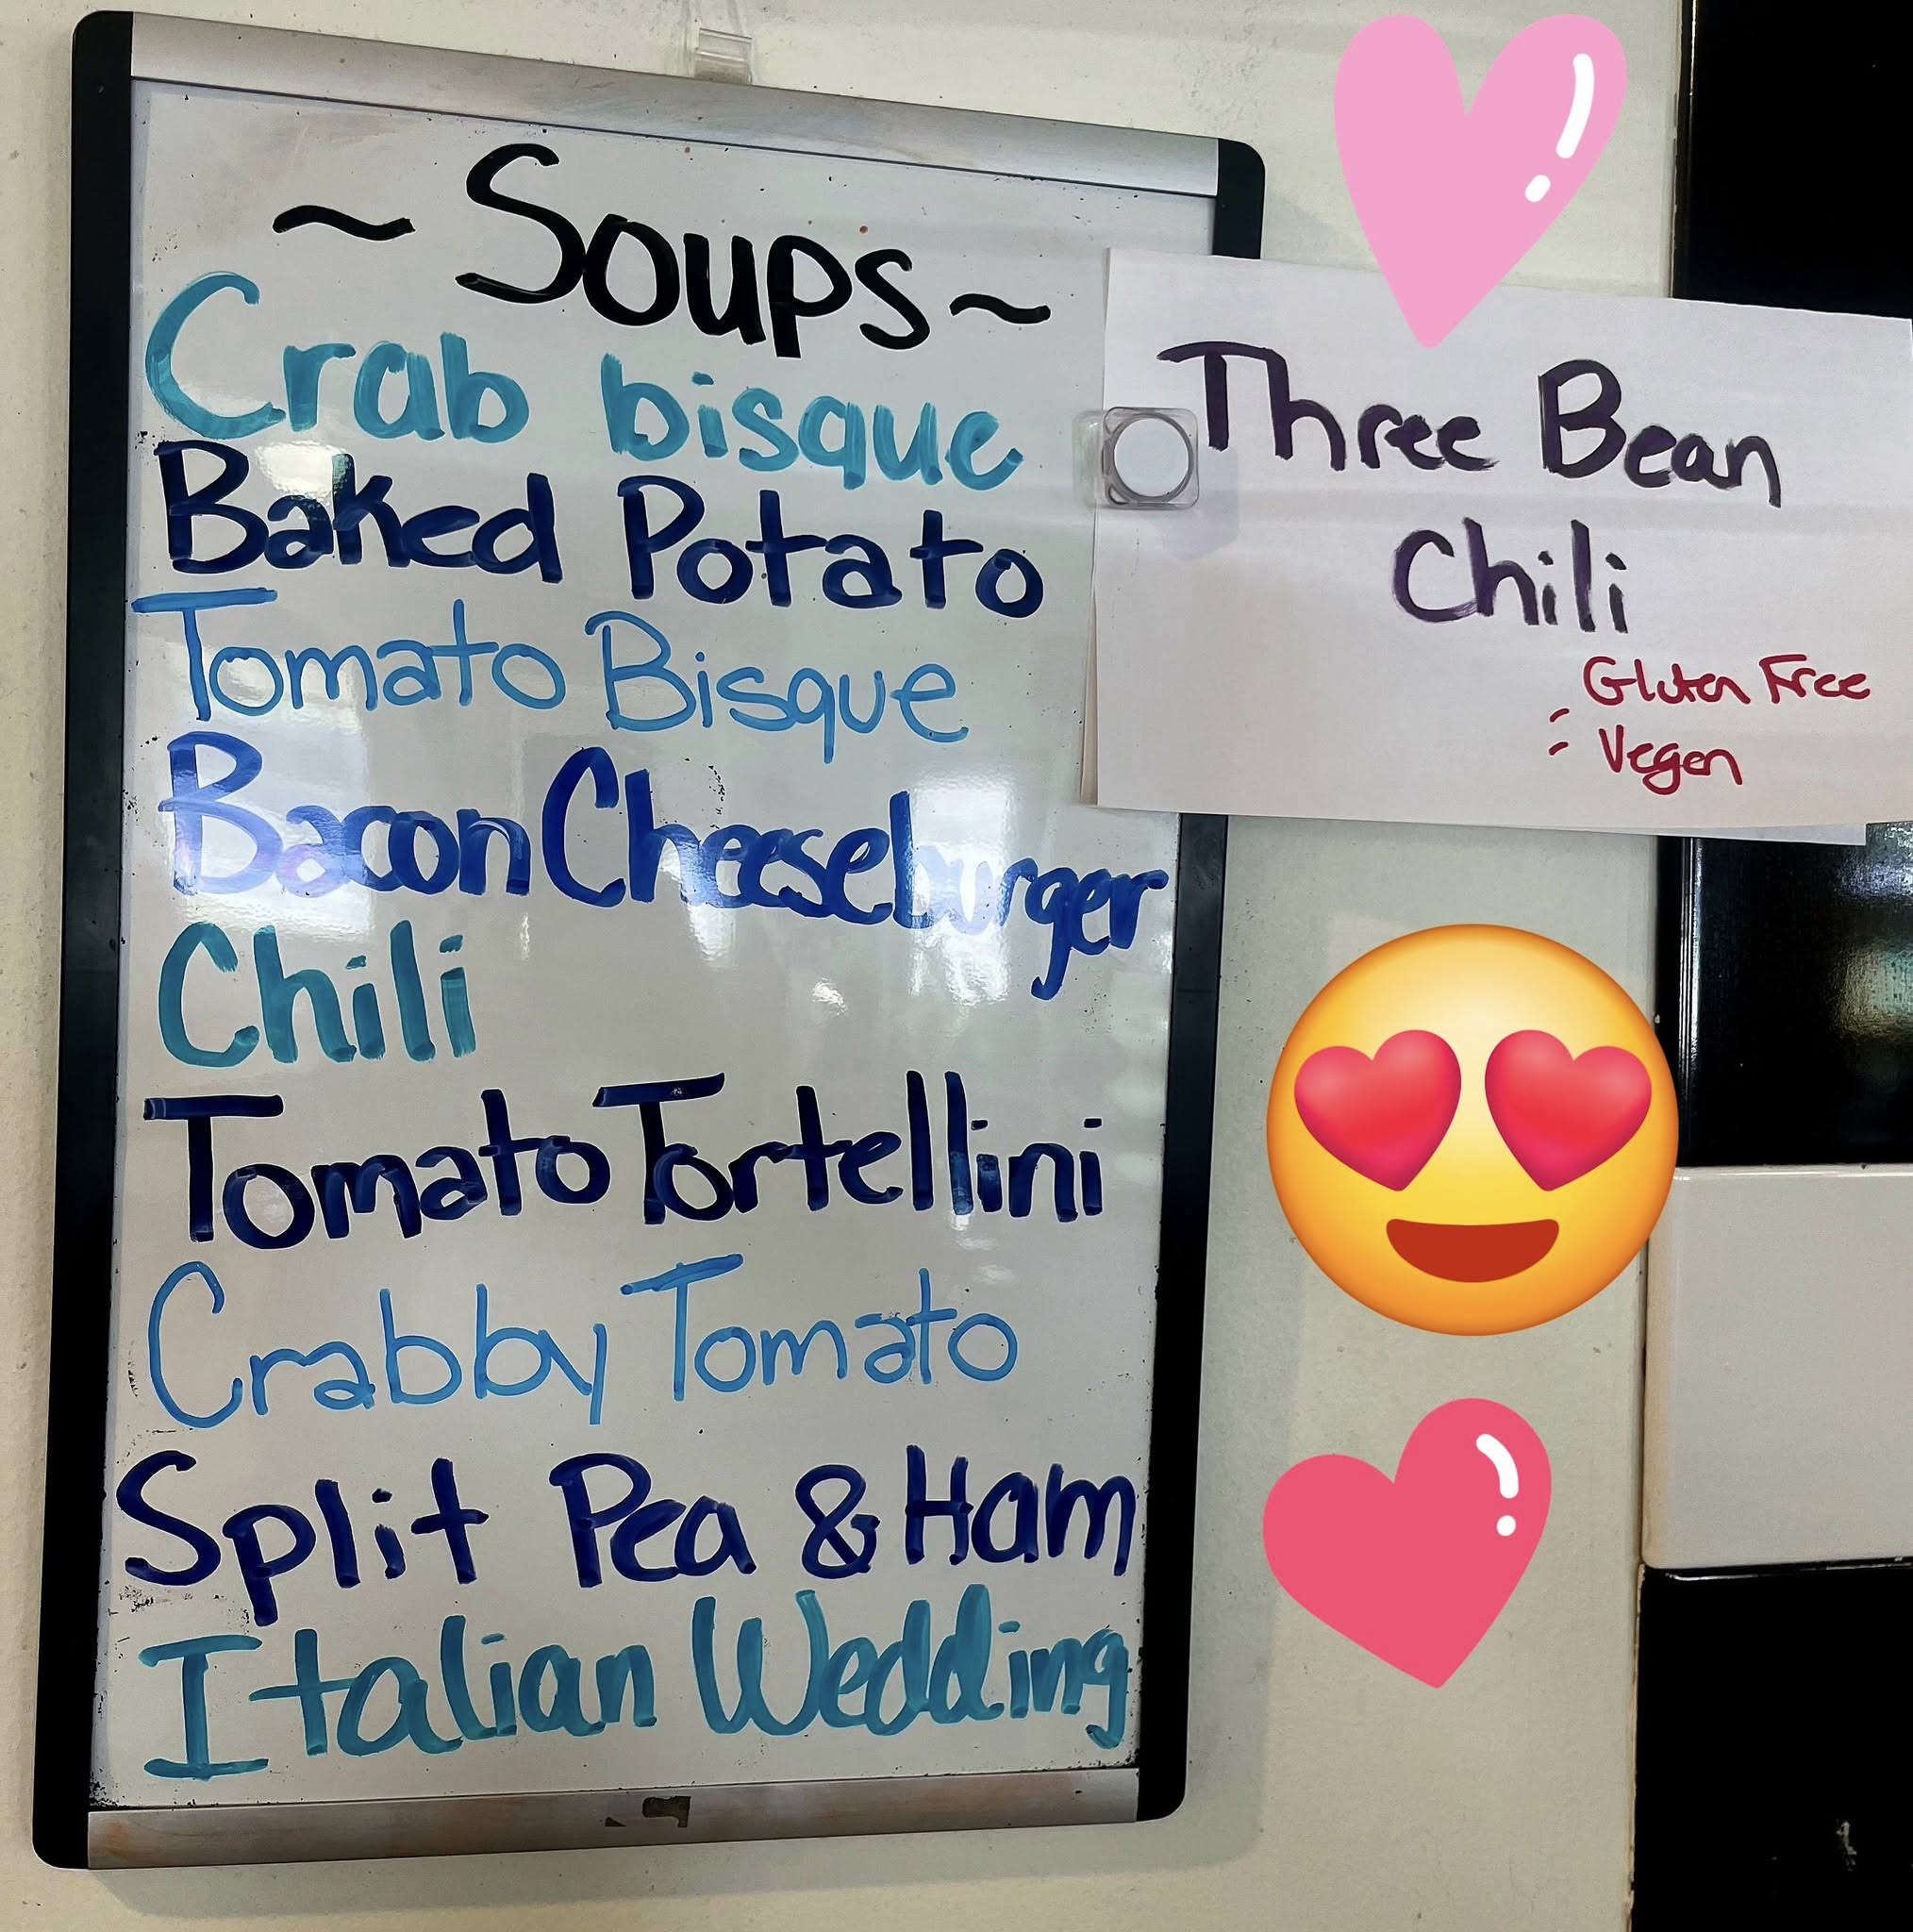 ~ Soups ~
Crab bisque
Baked Potato
Tomato Bisque
Bacon Cheeseburger
Chili
Tomato Tortellini
Crabby Tomato
Split Pea & Ham
Italian Wedding
Three Bean
Chili
Gluten Free
- Vegen